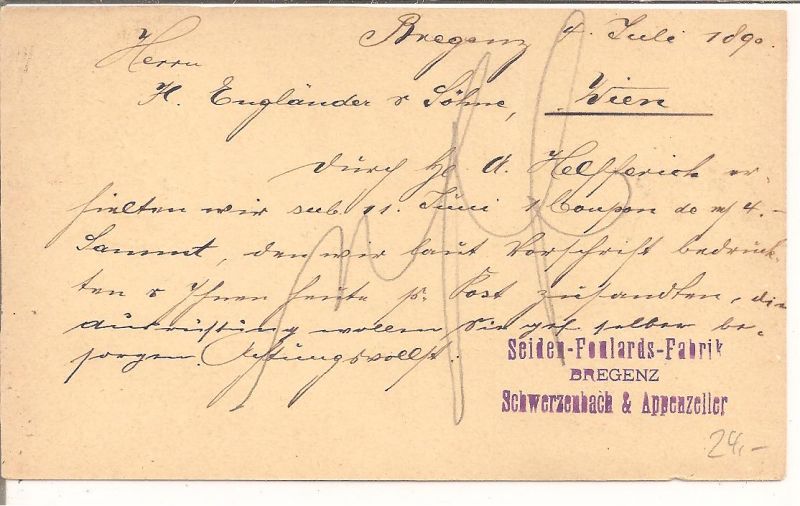 Bregenz 4. Juli 1890.
Herrn
H. Engländer & Söhne, Wien
Durch Hr. A. Helfferich er-
hielten wir sub. 11. Juni 1 Coupon de m/ 4.-
Sammt, den wir laut Vorschrift bedruck-
ten & Ihnen heute p. Post zusandten, die
Ausrüstung wollen Sie gefl selber be-
sorgen. Achtungsvollst.
Seiden-Foulards-Fabrik
BREGENZ
Schwerzenbach & Appenzeller
24,-